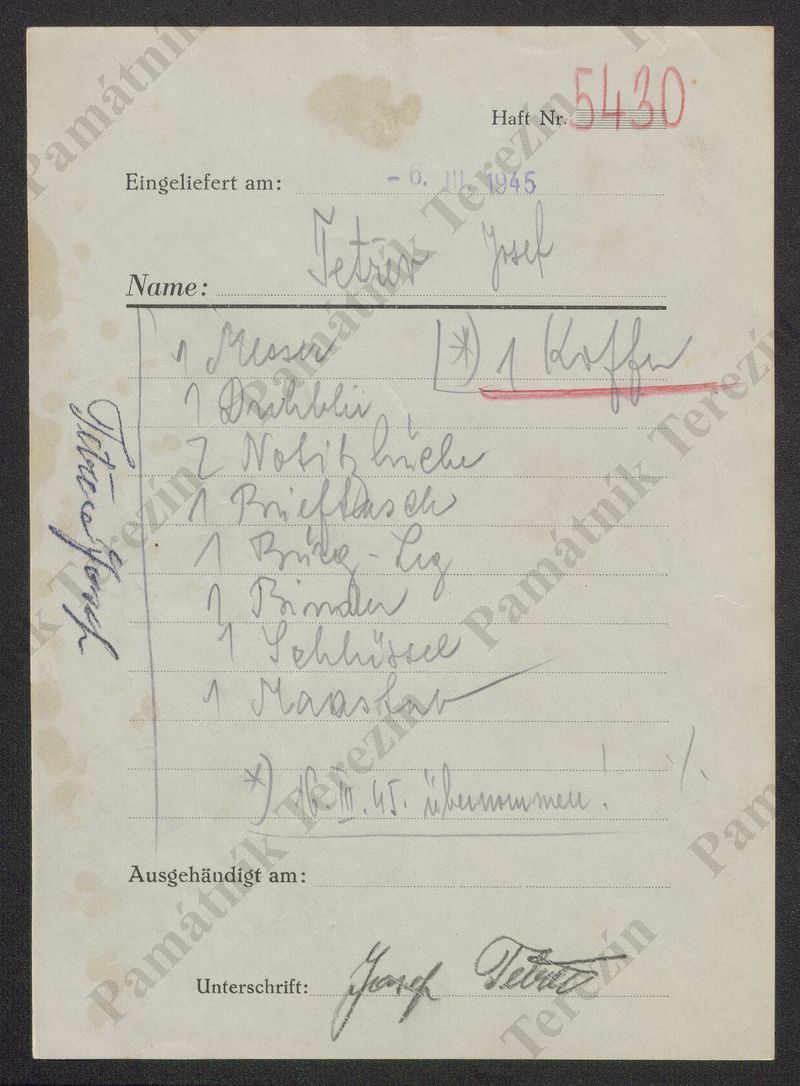 Haft Nr. 5430
Eingeliefert am: - 6. III. 1945
Name: Josef
1 Messer *) 1 Koffer
1
2 Notitzbüche
1 Brieftasch
1 Bürg-Leg
1 Binder
1 Schlüssel
1 Maastab
*) 16. III. 45. übernommen! ./.
Ausgehändigt am:
Unterschrift: Josef
Památník Terezín